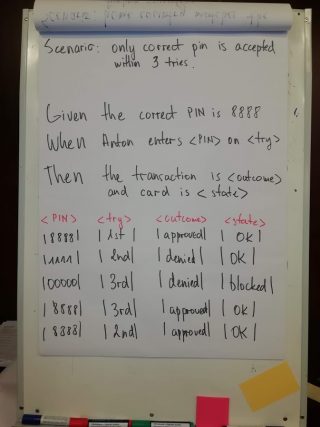 Scenario: only correct pin is accepted
within 3 tries.
Given the correct PIN is 8888
When Anton enters <PIN> on <try>
Then the transaction is <outcome>
and card is <state>
<PIN> <try> <outcome> <state>
|8888| |1st| |approved| |OK|
|1111| |2nd| |denied| |OK|
|0000| |3rd| |denied| |blocked|
|8888| |3rd| |approved| |OK|
|8888| |2nd| |approved| |OK|